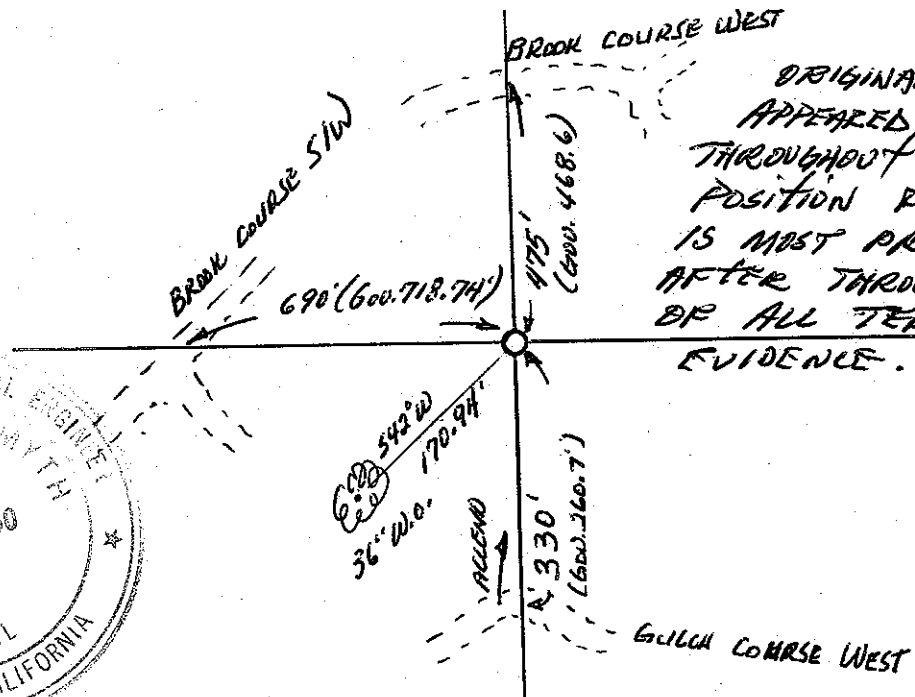 BROOK COURSE WEST
ORIGINA
APPEARED
THROUGHOUT
POSITION R
IS MOST PR
AFTER THROU
OF ALL TE
EVIDENCE.
BROOK COURSE S/W
475'
(GOV. 468.6)
690' (GOV. 718.74')
S42°W
170.94'
36" W.O.
ACCEND
330'
(GOV. 260.7')
GULCH COURSE WEST
AL ENGINEE
MYTH
LIFORNIA